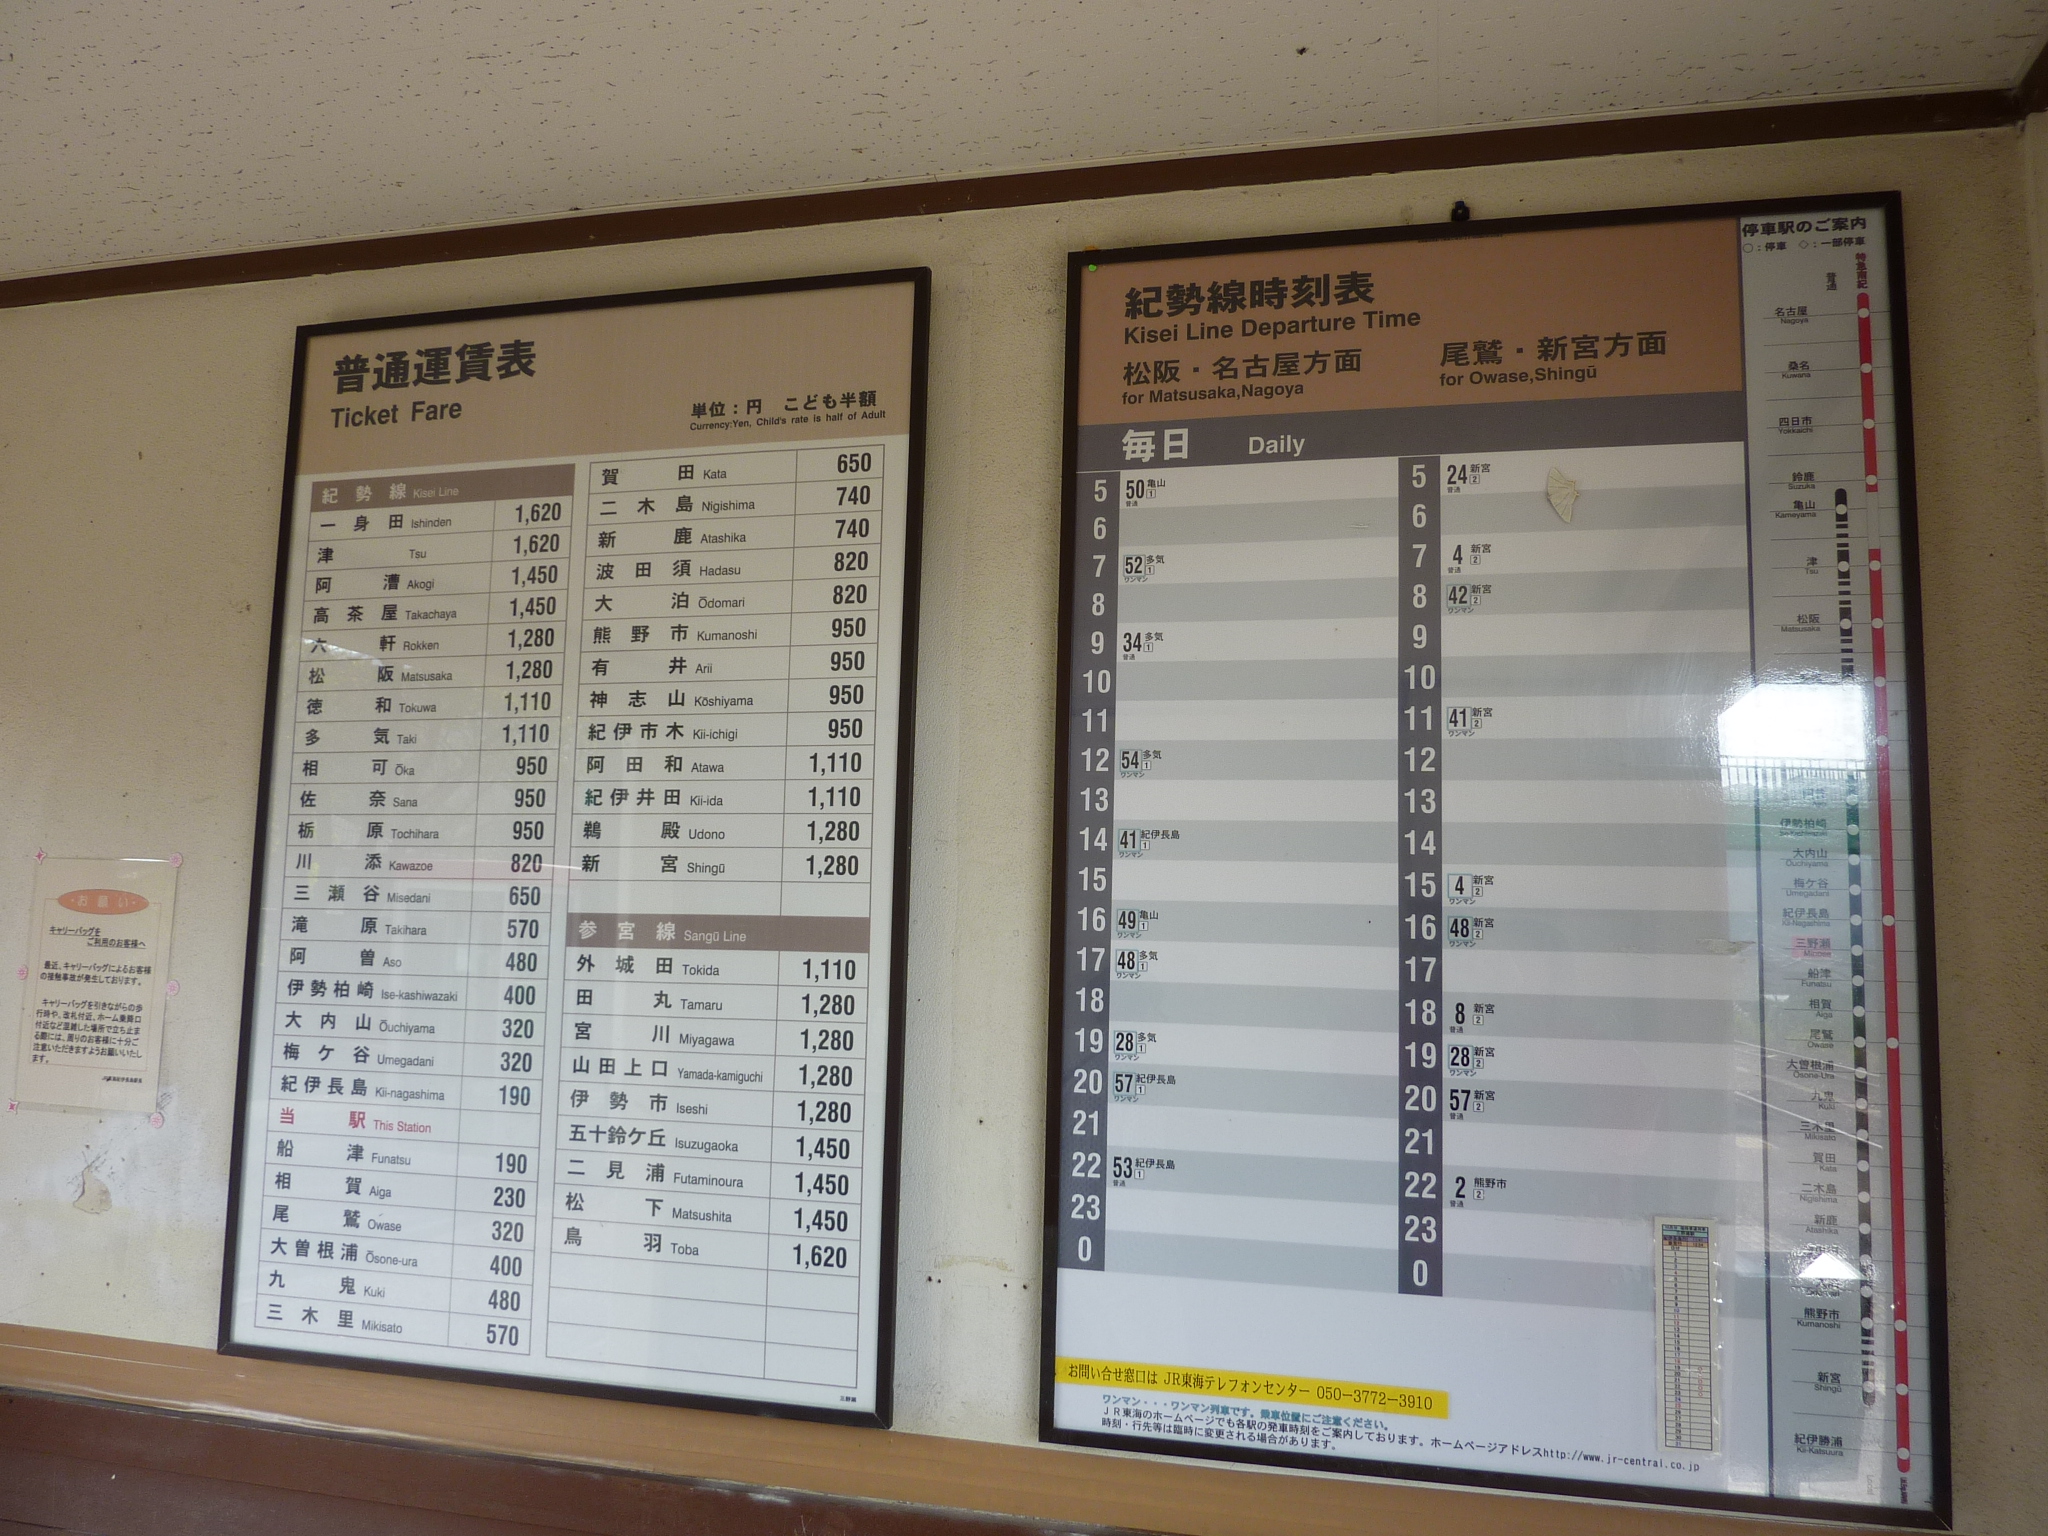 普通運賃表
Ticket Fare
単位：円 こども半額
Currency:Yen, Child's rate is half of Adult
紀勢線 Kisei Line
一身田 Ishinden 1,620
津 Tsu 1,620
阿漕 Akogi 1,450
高茶屋 Takachaya 1,450
六軒 Rokken 1,280
松阪 Matsusaka 1,280
徳和 Tokuwa 1,110
多気 Taki 1,110
相可 Ōka 950
佐奈 Sana 950
栃原 Tochihara 950
川添 Kawazoe 820
三瀬谷 Misedani 650
滝原 Takihara 570
阿曽 Aso 480
伊勢柏崎 Ise-kashiwazaki 400
大内山 Ōuchiyama 320
梅ケ谷 Umegadani 320
紀伊長島 Kii-nagashima 190
当駅 This Station
船津 Funatsu 190
相賀 Aiga 230
尾鷲 Owase 320
大曽根浦 Ōsone-ura 400
九鬼 Kuki 480
三木里 Mikisato 570
賀田 Kata 650
二木島 Nigishima 740
新鹿 Atashika 740
波田須 Hadasu 820
大泊 Ōdomari 820
熊野市 Kumanoshi 950
有井 Arii 950
神志山 Kōshiyama 950
紀伊市木 Kii-ichigi 950
阿田和 Atawa 1,110
紀伊井田 Kii-ida 1,110
鵜殿 Udono 1,280
新宮 Shingū 1,280
参宮線 Sangū Line
外城田 Tokida 1,110
田丸 Tamaru 1,280
宮川 Miyagawa 1,280
山田上口 Yamada-kamiguchi 1,280
伊勢市 Iseshi 1,280
五十鈴ケ丘 Isuzugaoka 1,450
二見浦 Futaminoura 1,450
松下 Matsushita 1,450
鳥羽 Toba 1,620
紀勢線時刻表
Kisei Line Departure Time
松阪・名古屋方面
for Matsusaka,Nagoya
尾鷲・新宮方面
for Owase,Shingū
毎日 Daily
5 50 亀山 1 普通
6
7 52 多気 1 ワンマン
8
9 34 多気 1 普通
10
11
12 54 多気 1 ワンマン
13
14 41 紀伊長島 1 ワンマン
15
16 49 亀山 1 ワンマン
17 48 多気 1 ワンマン
18
19 28 多気 1 ワンマン
20 57 紀伊長島 1 ワンマン
21
22 53 紀伊長島 1 普通
23
0
5 24 新宮 2 普通
6
7 4 新宮 2 普通
8 42 新宮 2 ワンマン
9
10
11 41 新宮 2 ワンマン
12
13
14
15 4 新宮 2 ワンマン
16 48 新宮 2 ワンマン
17
18 8 新宮 2 普通
19 28 新宮 2 ワンマン
20 57 新宮 2 普通
21
22 2 熊野市 2 普通
23
0
お問い合せ窓口は JR東海テレフォンセンター 050-3772-3910
ワンマン・・・ワンマン列車です。乗車位置にご注意ください。
JR東海のホームページでも各駅の発車時刻をご案内しております。ホームページアドレスhttp://www.jr-central.co.jp
時刻・行先等は臨時に変更される場合があります。
停車駅のご案内
○：停車 ◇：一部停車
普通 特急南紀
名古屋 Nagoya
桑名 Kuwana
四日市 Yokkaichi
鈴鹿 Suzuka
亀山 Kameyama
津 Tsu
松阪 Matsusaka
伊勢柏崎
大内山 Ouchiyama
梅ケ谷 Umegadani
紀伊長島 Kii-Nagashima
三野瀬 Minose
船津 Funatsu
相賀 Aiga
尾鷲 Owase
大曽根浦 Osone-Ura
九鬼 Kuki
三木里 Mikisato
賀田 Kata
二木島 Nigishima
新鹿 Atashika
熊野市 Kumanoshi
新宮 Shingū
紀伊勝浦 Kii-Katsuura
・お願い・
キャリーバッグを
ご利用のお客様へ
最近、キャリーバッグによるお客様
の接触事故が発生しております。
キャリーバッグを引きながらの歩
行時や、改札付近、ホーム乗降口
付近など混雑した場所で立ち止ま
る際には、周りのお客様に十分ご
注意いただきますようお願いいたし
ます。